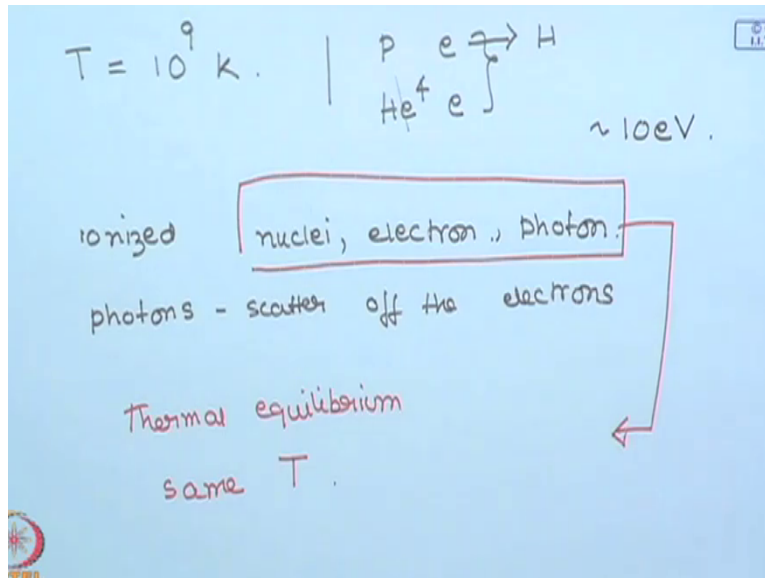 T = 10⁹ K. | P e → H
He⁴ e
~ 10eV.
ionized nuclei, electron, photon.
photons - scatter off the electrons
Thermal equilibrium
same T.